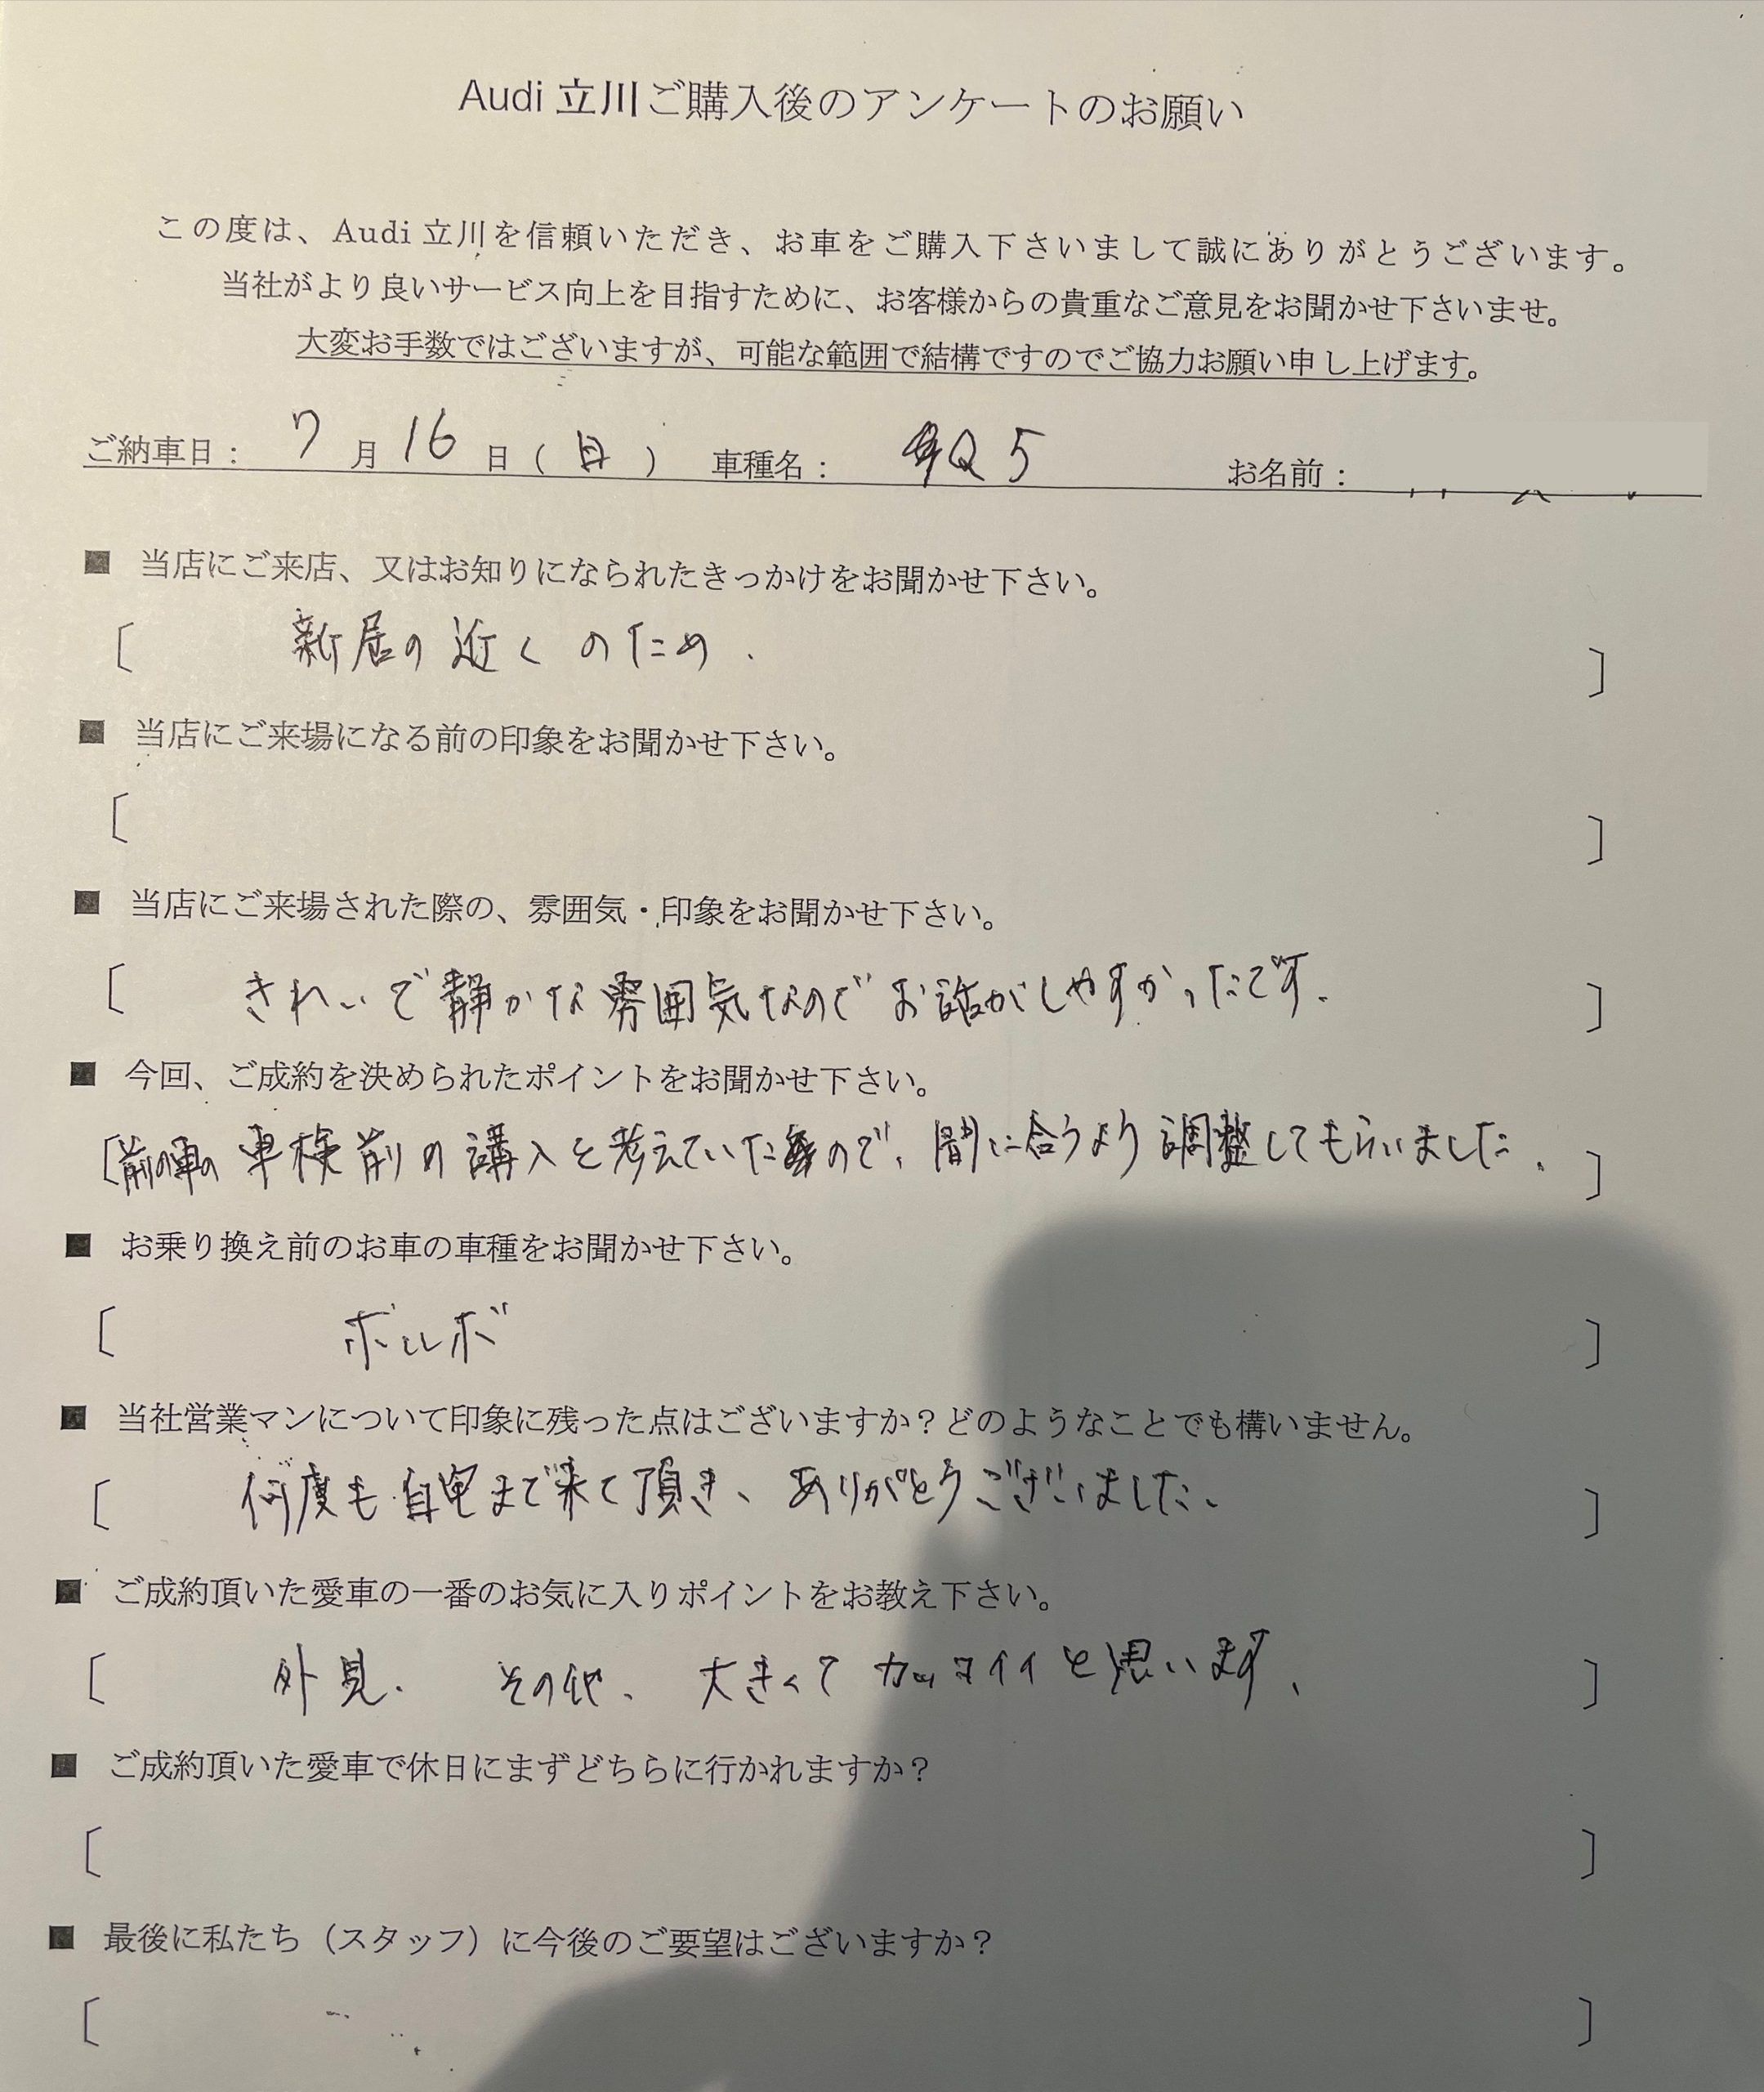 Audi 立川ご購入後のアンケートのお願い
この度は、Audi 立川を信頼いただき、お車をご購入下さいまして誠にありがとうございます。
当社がより良いサービス向上を目指すために、お客様からの貴重なご意見をお聞かせ下さいませ。
大変お手数ではございますが、可能な範囲で結構ですのでご協力お願い申し上げます。
ご納車日： 7 月 16 日（ 日 ） 車種名： Q5 お名前：
■ 当店にご来店、又はお知りになられたきっかけをお聞かせ下さい。
〔 新居の近くのため. 〕
■ 当店にご来場になる前の印象をお聞かせ下さい。
〔 〕
■ 当店にご来場された際の、雰囲気・印象をお聞かせ下さい。
〔 きれいで静かな雰囲気なのでお話がしやすかったです. 〕
■ 今回、ご成約を決められたポイントをお聞かせ下さい。
〔 前の車の車検前の購入を考えていたので、間に合うよう調整してもらいました. 〕
■ お乗り換え前のお車の車種をお聞かせ下さい。
〔 ボルボ 〕
■ 当社営業マンについて印象に残った点はございますか？どのようなことでも構いません。
〔 何度も自宅まで来て頂き、ありがとうございました. 〕
■ ご成約頂いた愛車の一番のお気に入りポイントをお教え下さい。
〔 外見. その他、大きくてカッコイイと思います. 〕
■ ご成約頂いた愛車で休日にまずどちらに行かれますか？
〔 〕
■ 最後に私たち（スタッフ）に今後のご要望はございますか？
〔 〕